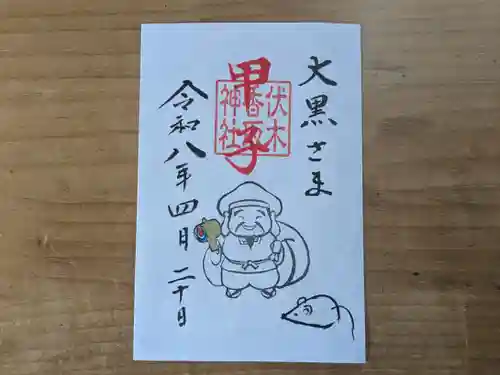 大黒さま
甲子
伏木
香西
神社
令和八年四月二十日